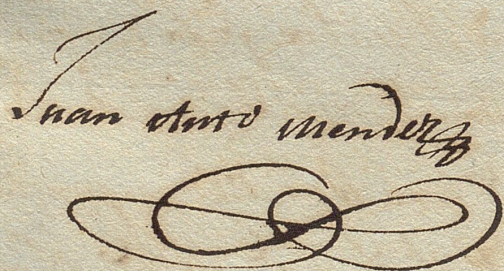 Juan Anto Mendez